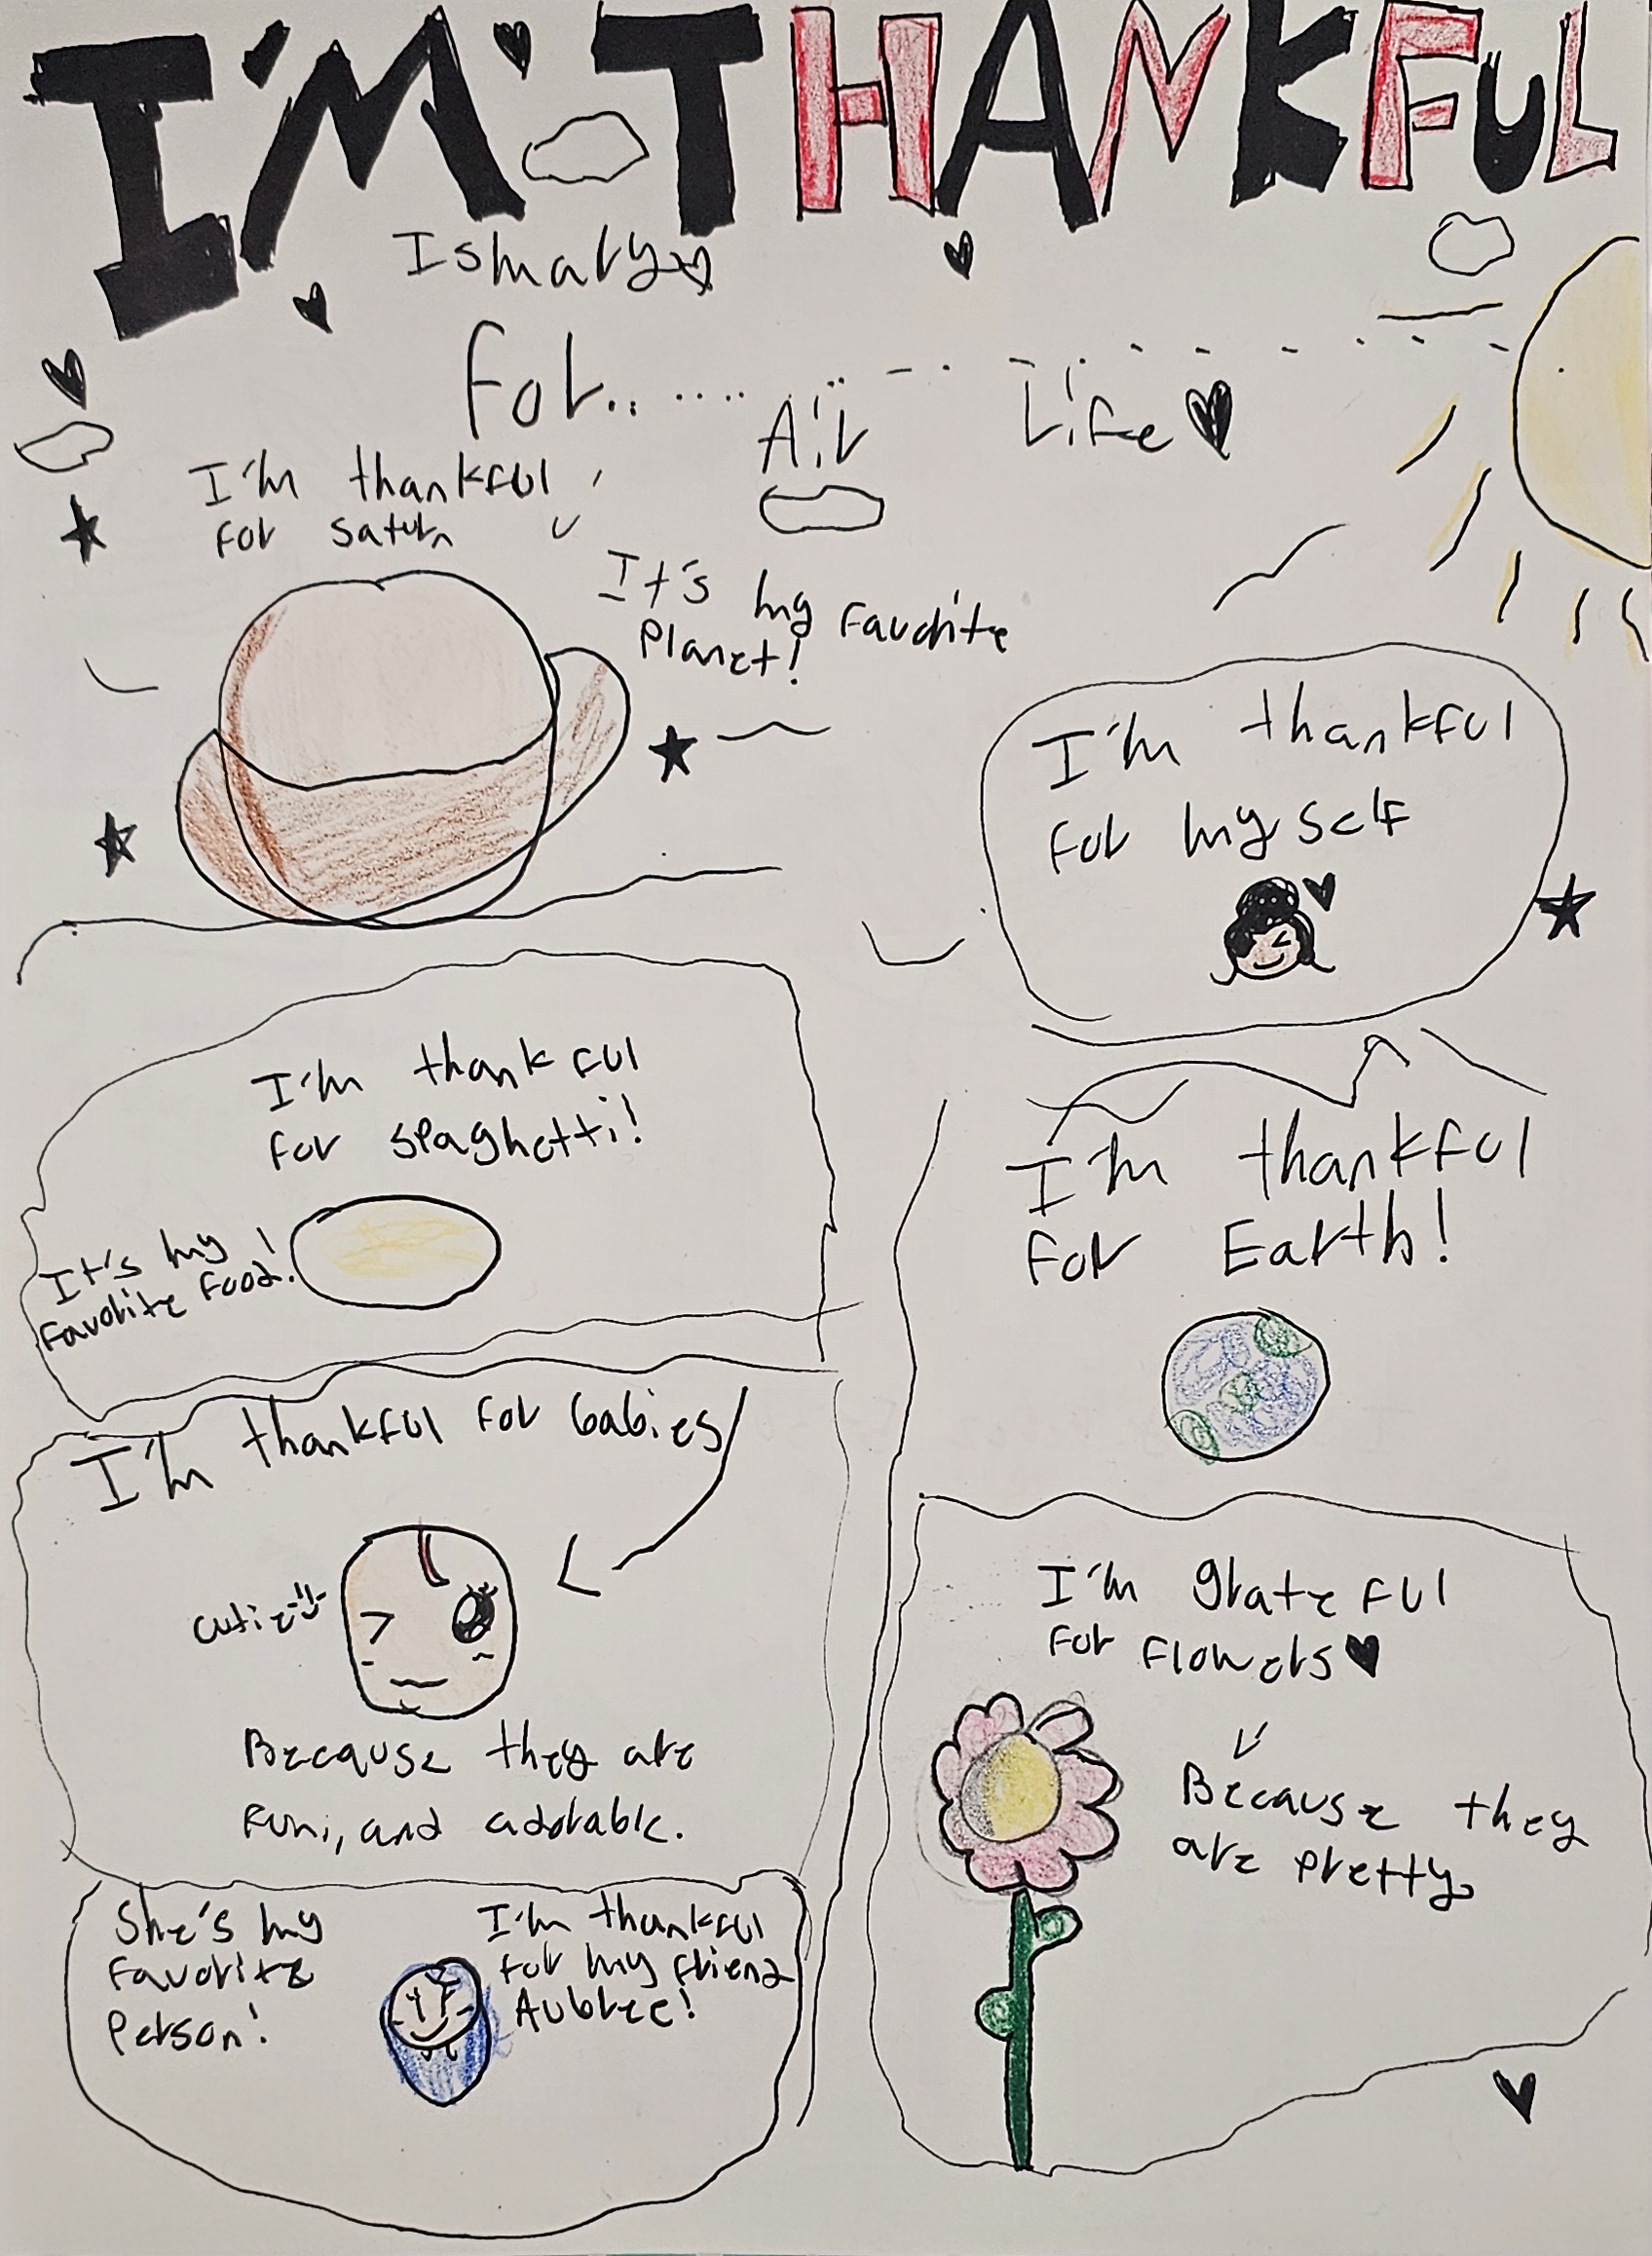 I'M THANKFUL
Ismary
For........
Air
Life
I'm thankful
for saturn
It's my favorite
Planet!
I'm thankful
for myself
I'm thankful
for spaghetti!
It's my
favorite food!
I'm thankful
for Earth!
I'm thankful for babies
cutie
Because they are
Funi, and adorable.
I'm grateful
for flowers
Because they
are pretty
She's my
favorite
Person!
I'm thankful
for my friend
Aubree!